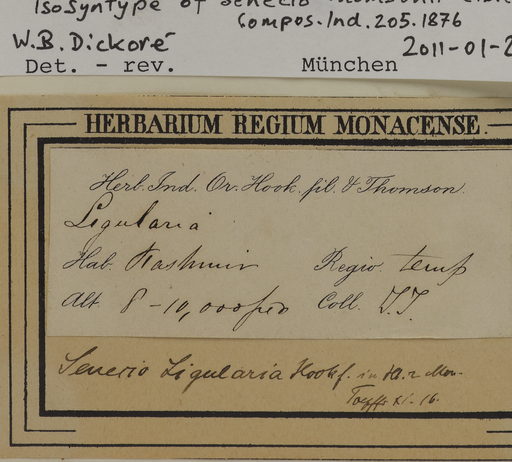 Isosyntype of Senecio thomsonii Clarke
Compos. Ind. 205. 1876
W.B. Dickoré 2011-01-2
Det. - rev. München
HERBARIUM REGIUM MONACENSE.
Herb. Ind. Or. Hook. fil. & Thomson.
Ligularia
Hab. Kashmir Regio. temp
Alt. 8-10,000 ped Coll. T.T.
Senecio Ligularia Hook f. in